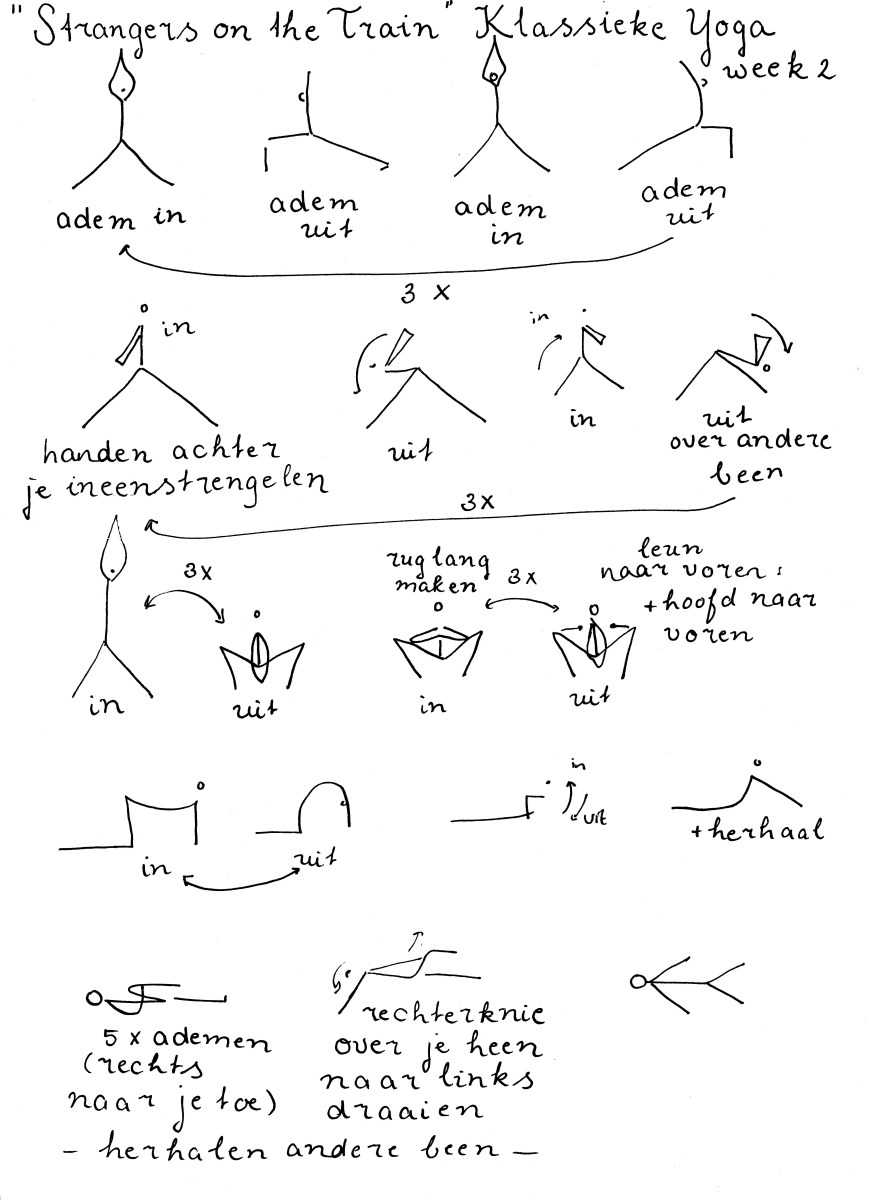 "Strangers on the Train" Klassieke Yoga
week 2
adem in
adem
uit
adem
in
adem
uit
3 x
in
in
handen achter
je ineenstrengelen
uit
in
uit
over andere
been
3x
3x
in
uit
rug lang
maken
3x
in
leun
naar voren:
+hoofd naar
voren
uit
in
uit
in
uit
+herhaal
5 x ademen
(rechts
naar je toe)
rechterknie
over je heen
naar links
draaien
- herhalen andere been -